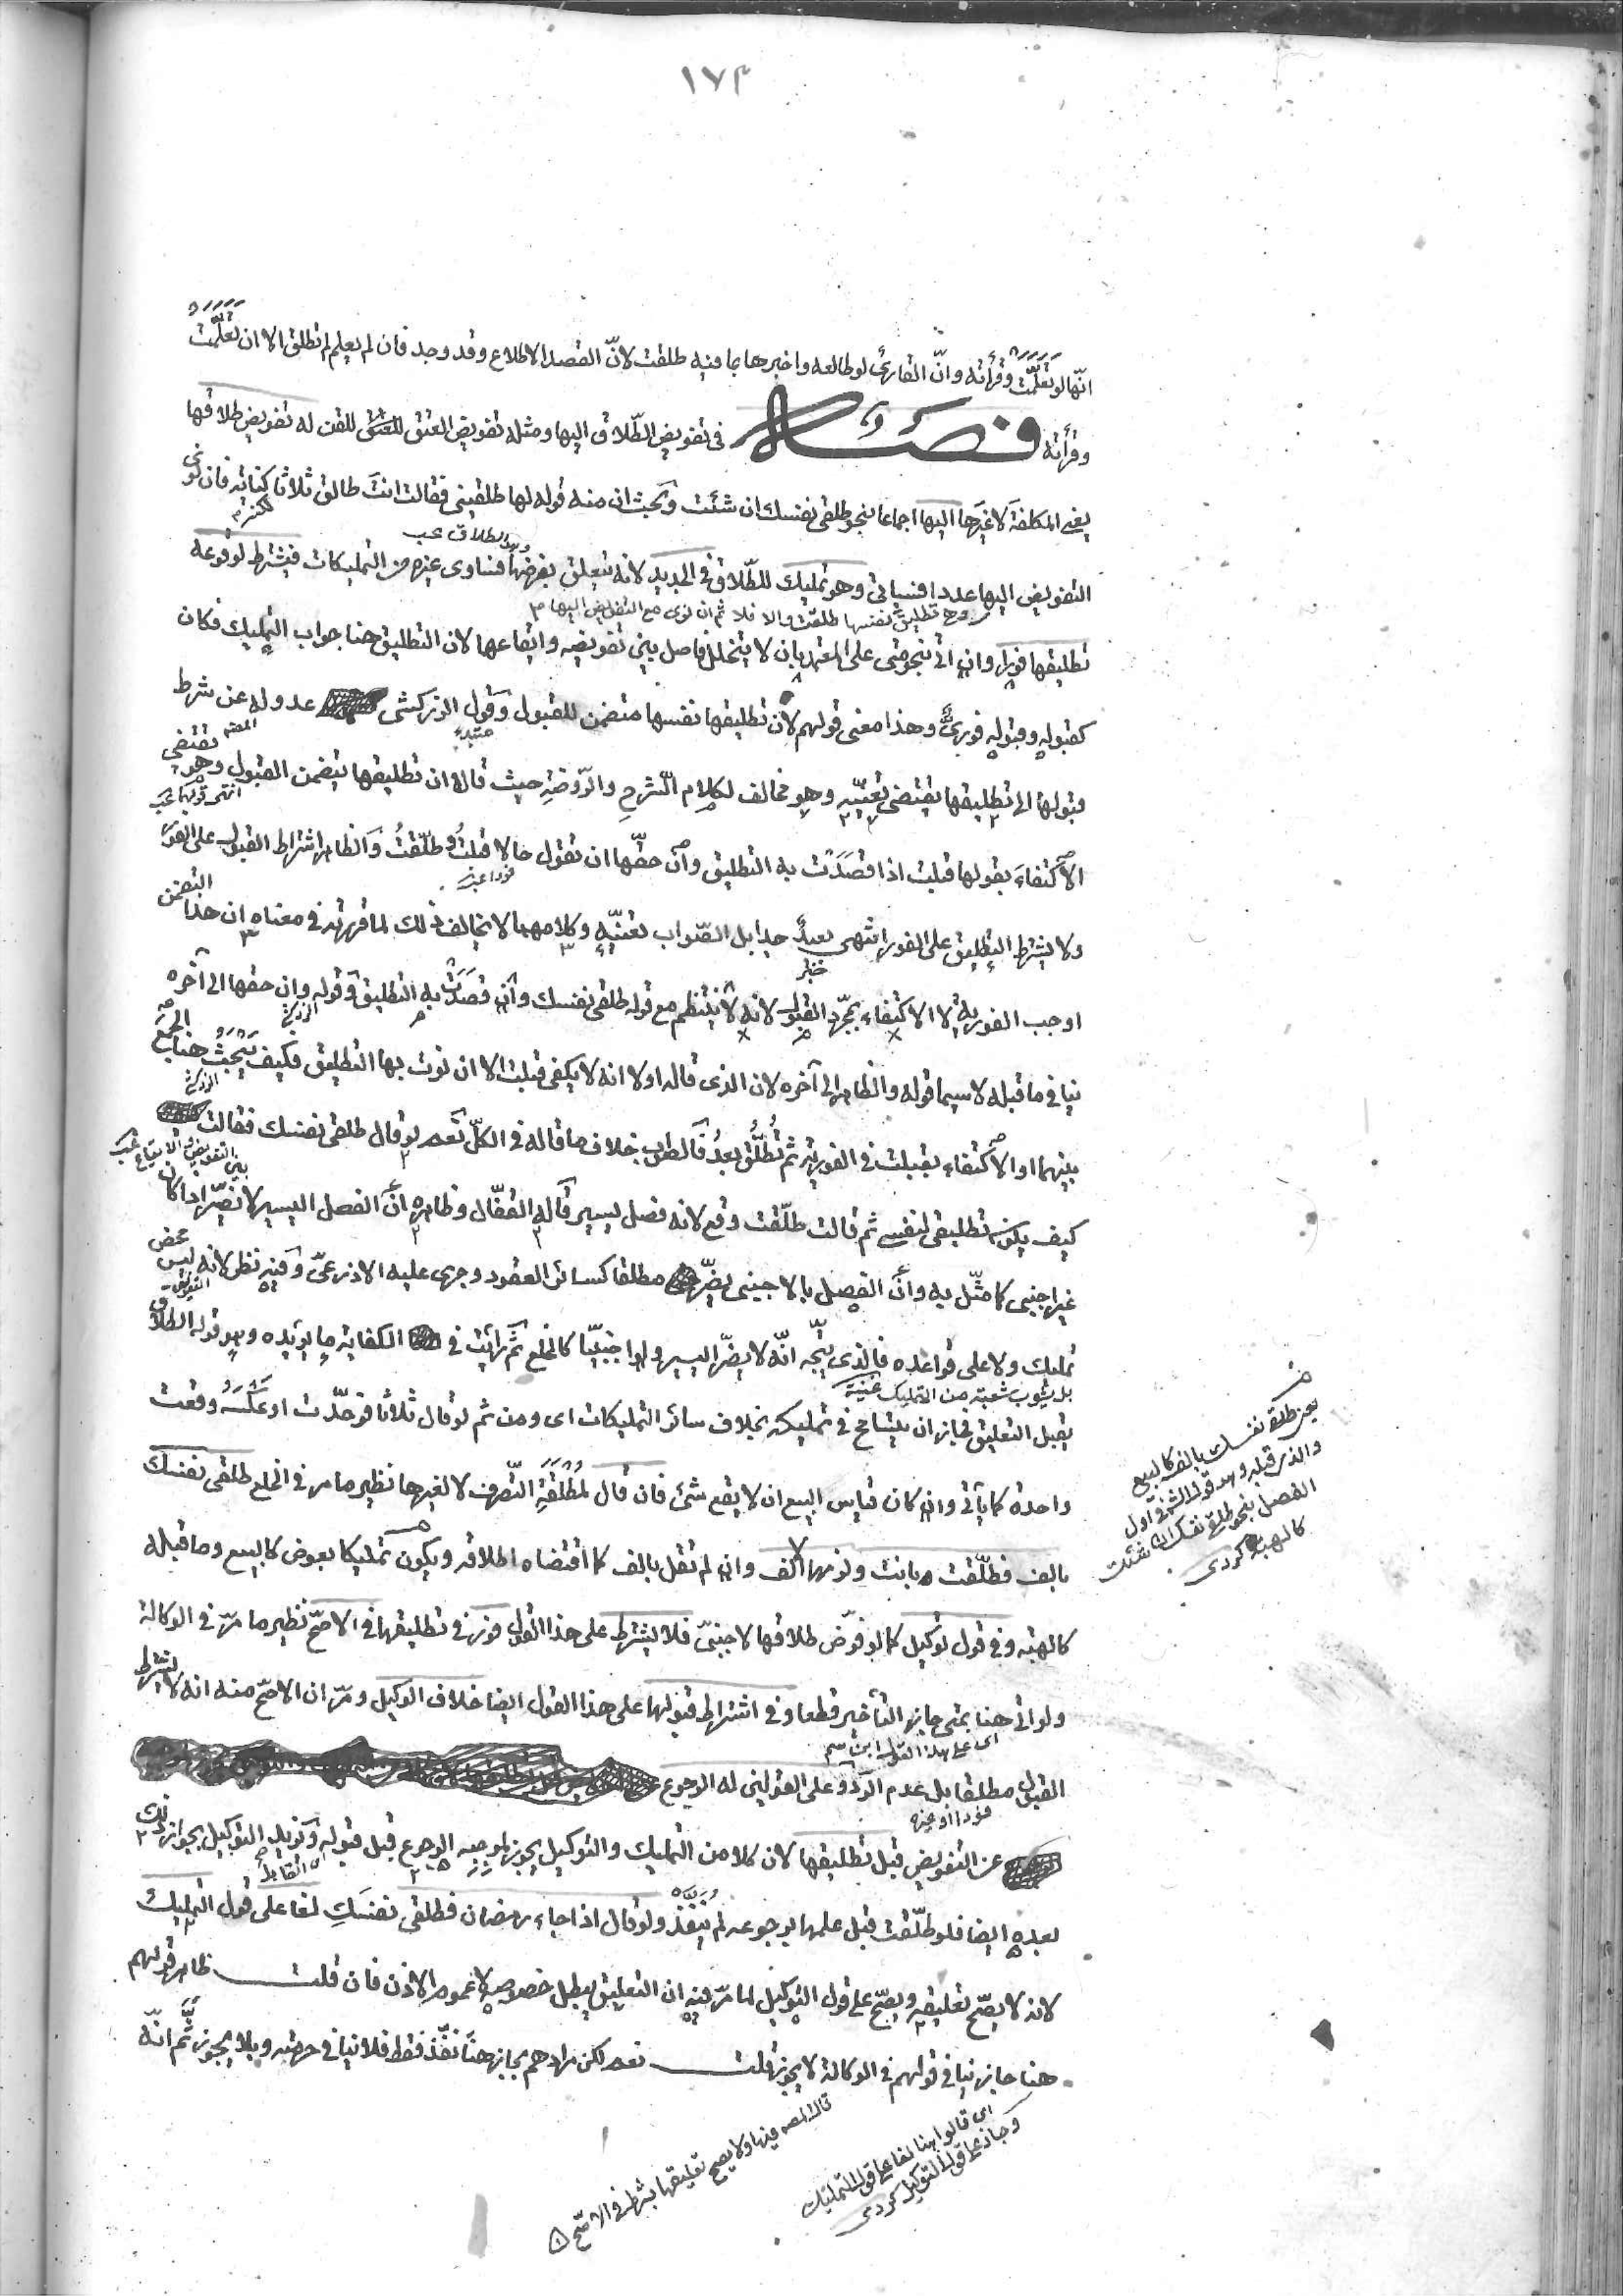 ١٧٣
انّها لو تعلّمت وقرأته وانّ القارئ لو طالعه واخبرها بما فيه طلقت لانّ القصد الاطلاع وقد وجد فان لم يعلم لم تطلق الا ان تعلّمت
وقرأته فصل في تفويض الطّلاق اليها ومثله تفويض العتق للقن له تفويض طلاقها
يعني المكلفة لا غيرها اليها اجماعا بنحو طلقي نفسك ان شئت وبحث ان منه قوله لها طلقيني فقالت انت طالق ثلاثا كناية فان نوى
التفويض اليها وعددا فسيأتي وهو تمليك للطّلاق في الجديد لانه يتعلق بغرضها فساوى غيره من التمليكات فيشترط لوقوعه
وهو تطليق نفسها طلقت والا فلا ثم ان نوى مع التفويض اليها م
تطليقها فورا وان اتى بنحو متى على المعتمد بان لا يتخلل فاصل بين تفويضه وايقاعها لان التطليق هنا جواب التمليك فكان
كقبوله وقبوله فوريّ وهذا معنى قولهم لان تطليقها نفسها متضمن للقبول وقول الزركشي عدوله عن شرط
قبولها الى تطليقها يقتضي تعيّنه وهو مخالف لكلام الشرح والروضة حيث قالا ان تطليقها يتضمن القبول وهو يقتضي
الاكتفاء بقولها قبلت اذا قصدت به التطليق وان حقّها ان تقول حالا قبلت وطلّقت والظاهر اشتراط القبول على الفور
ولا يشترط التطليق على الفور انتهى بعيد جدا بل الصّواب تعيّنه وكلامهما لا يخالف ذلك لما قررته في معناه ان هذا التضمن
اوجب الفورية لا الاكتفاء بمجرّد القبول لانه لا ينتظم مع قوله طلقي نفسك وان قصدت به التطليق وقوله وان حقها الى آخره
ينافي ما قبله لا سيما قوله والظاهر الى آخره لان الذي قاله اولا انه لا يكفي قبلت الا ان نوت بها التطليق فكيف يبحث هنا مع الجمع
بينهما او الاكتفاء بقبلت في الفورية ثم تطلّق بعد فالصواب خلاف ما قاله في الكلّ نعم لو قال طلقي نفسك فقالت
كيف يكون تطليقي لنفسي ثم قالت طلّقت وقع لانه فصل يسير قاله القفّال وظاهره انّ الفصل اليسير لا يضرّ اذا كان
غير اجنبي كما مثّل به وانّ الفصل بالاجنبي يضرّ مطلقا كسائر العقود وجرى عليه الاذرعيّ وفيه نظر لانه ليس محض
تمليك ولا على قواعده فالذي يتّجه انّه لا يضرّ اليسير ولو اجنبيّا كالخلع ثمّ رأيت في الكفاية ما يؤيده وهو قوله الطلاق
بل يشوب شعبة من التمليك
يقبل التعليق فجاز ان يتسامح في تمليكه بخلاف سائر التمليكات اي ومن ثم لو قال ثلاثا فوحّدت او عكسه وقعت
واحدة كما يأتي وان كان قياس البيع ان لا يقع شئ فان قال لمطلقة التّصرف لا لغيرها نظير ما مر في الخلع طلقي نفسك
بالف فطلّقت بانت ولزمها الف وان لم تقل بالف كما اقتضاه اطلاقه ويكون تمليكا بعوض كالبيع وما قبله
كالهبة وفي قول توكيل كما لو فوّض طلاقها لاجنبيّ فلا يشترط على هذا القول فور في تطليقها في الاصحّ نظير ما مرّ في الوكالة
ولو اتى هنا بمتى جاز التأخير قطعا وفي اشتراط قبولها على هذا القول ايضا خلاف الوكيل ومرّ ان الاصحّ منه انه لا يشترط
اي على هذا القول ابن سم
القبول مطلقا بل عدم الردّ وعلى القولين له الرجوع
عن التفويض قبل تطليقها لان كلا من التمليك والتوكيل يجوز لموجبه الرجوع قبل قبوله ويزيد التوكيل بجواز ذلك
بعده ايضا فلو طلّقت قبل علمها برجوعه لم ينفذ ولو قال اذا جاء رمضان فطلقي نفسك لغا على قول التمليك
لانه لا يصحّ تعليقه ويصحّ على قول التوكيل لما مرّ فيه ان التعليق يبطل خصوصه لا عموم الاذن فان قلت ظاهر قولهم
هنا جاز ينافي قولهم في الوكالة لا يجوز قلت نعم لكن مرادهم بجاز هنا نفذ فقط فلا ينافي حرمته وبلا يجوز ثمّ انّه
يعني طلقي نفسك بالف كالبيع
والذي قبله وهو قول الشخص اول
الفصل بنحو طلقي نفسك ان شئت
كالهبة كردي
قال المصنف فيها ولا يصح تعليقها بشرط في الاصحّ
اي قالوا هنا لغا على قول التمليك
وجاز على قول التوكيل كردي